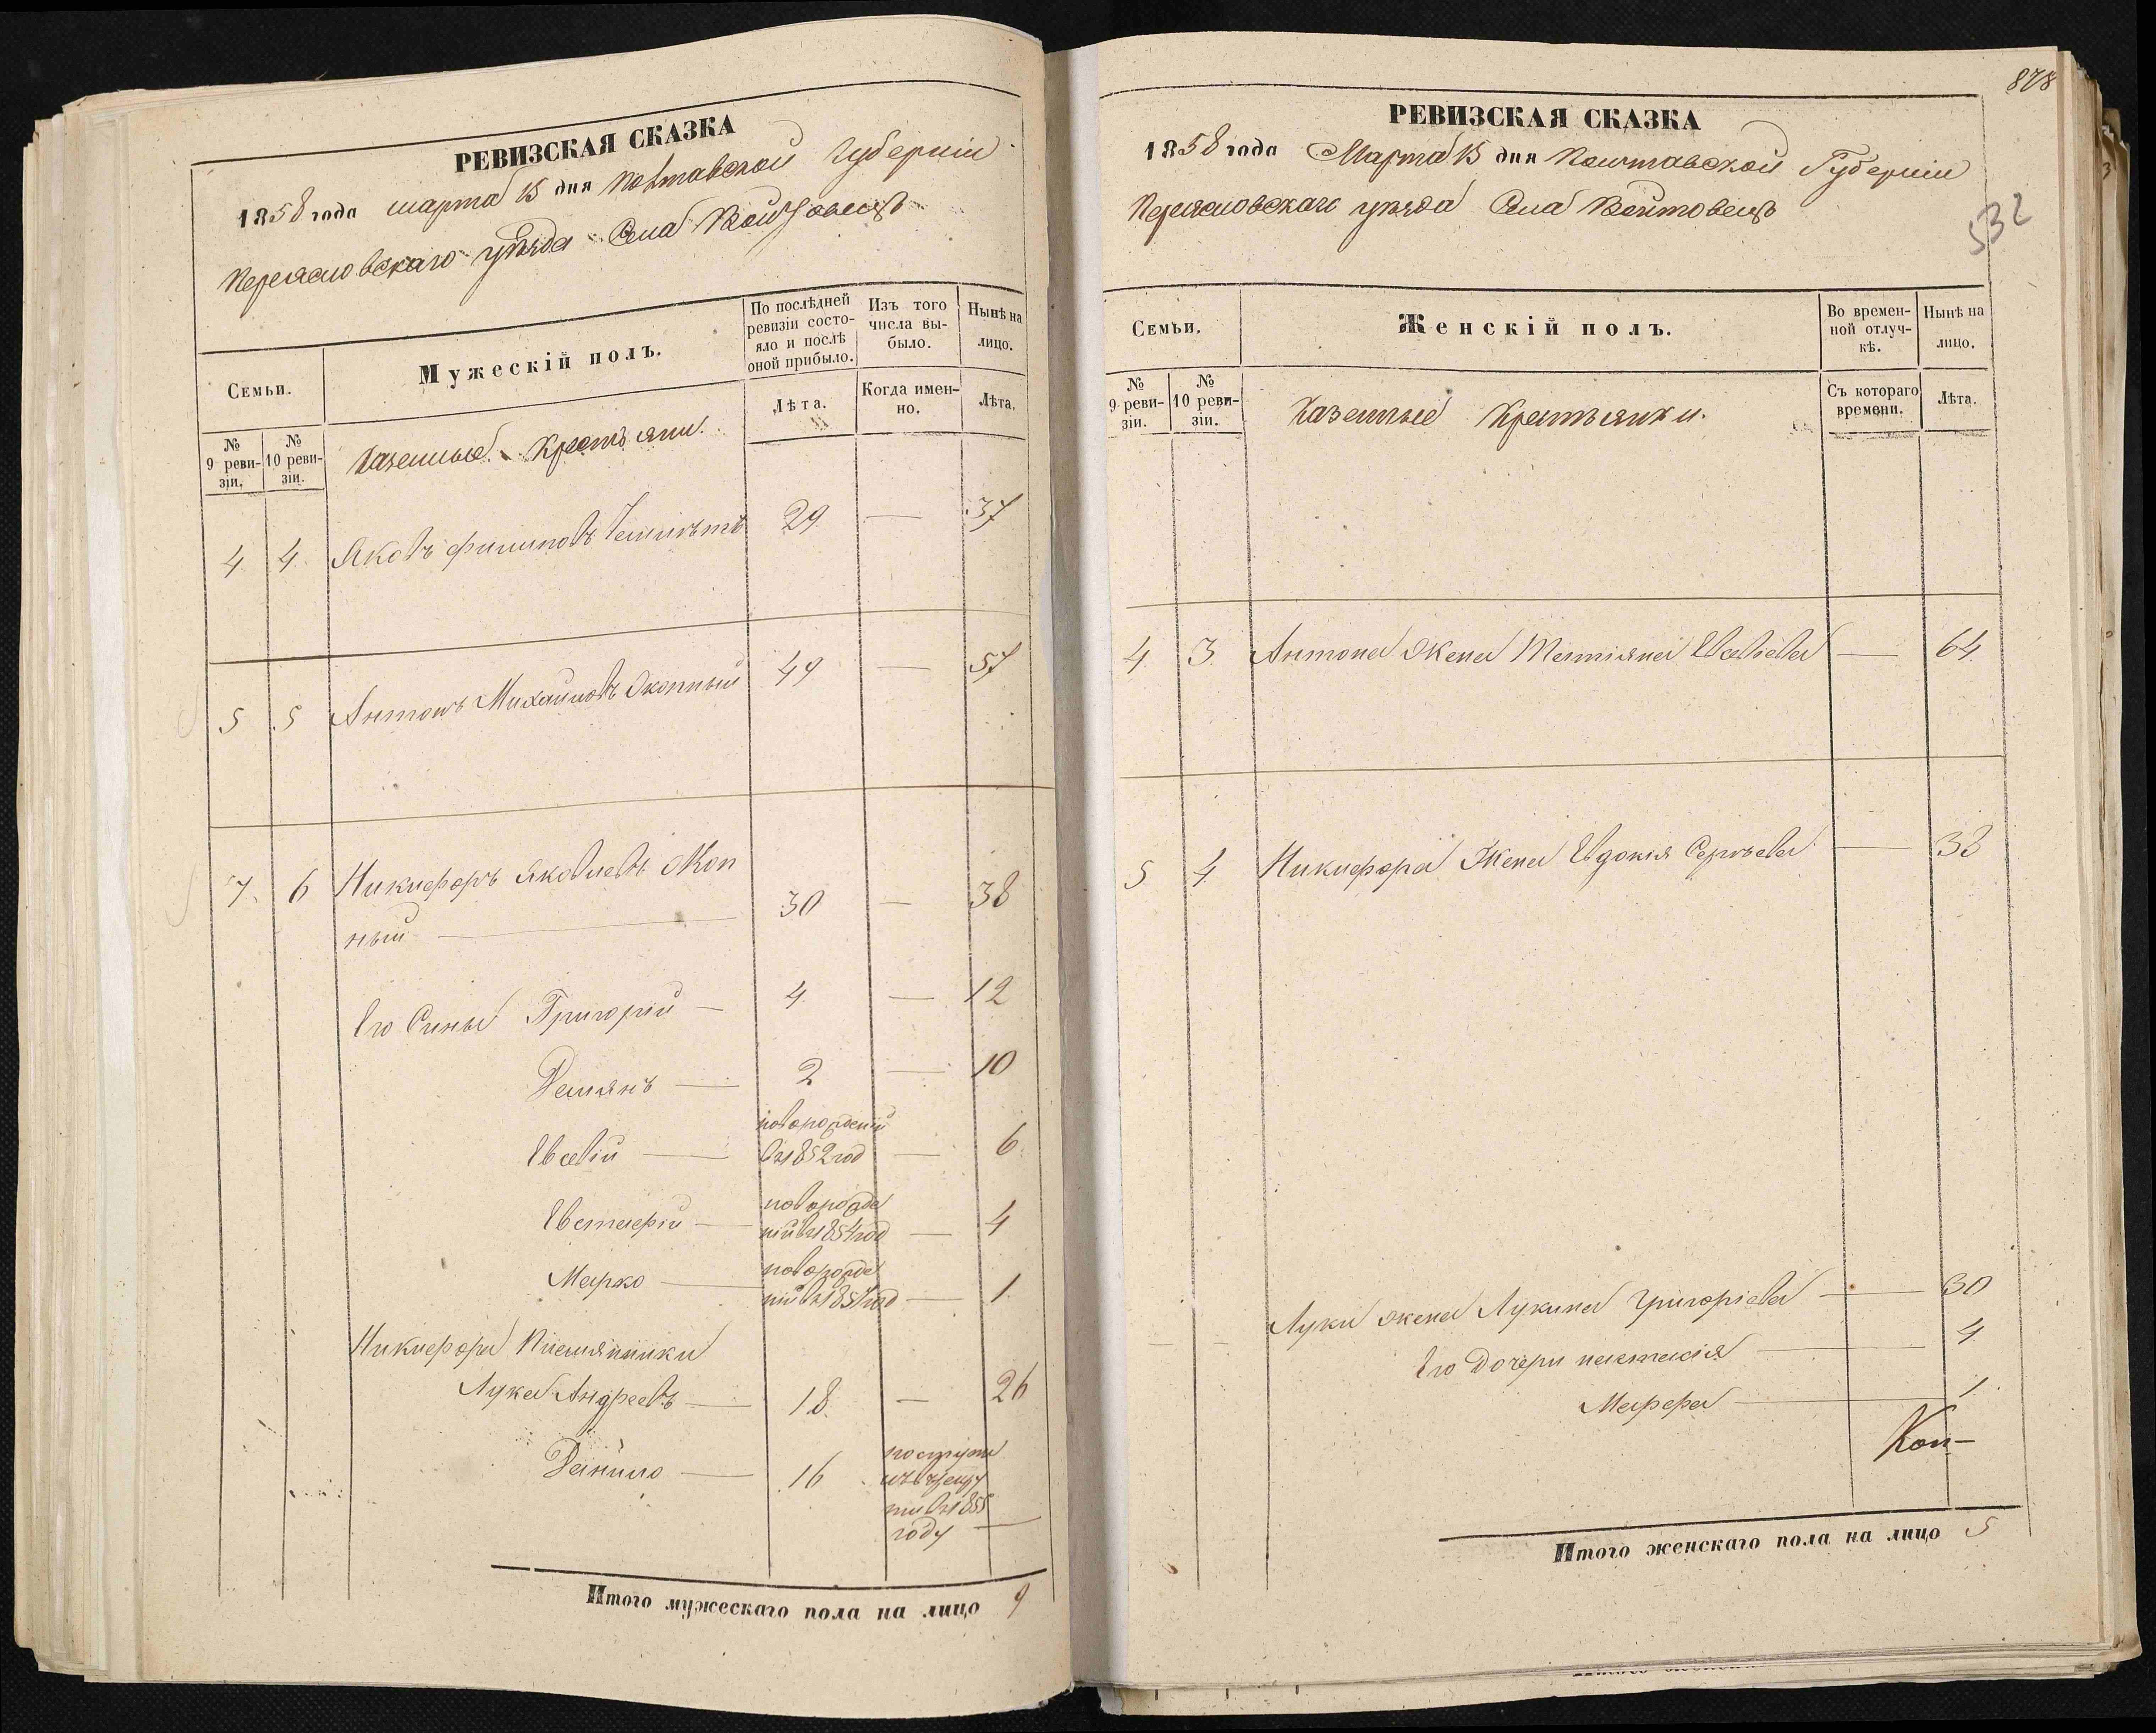 РЕВИЗСКАЯ СКАЗКА
1858 года марта 15 дня Полтавской Губерніи
Переясловскаго уѣзда Села Войтовецъ
Семьи.
Мужескій полъ.
По послѣдней ревизіи состояло и послѣ оной прибыло.
Изъ того числа выбыло.
Нынѣ на лицо.
№ 9 ревизіи.
№ 10 ревизіи.
Казенные Крестьяни.
Лѣта.
Когда именно.
Лѣта.
4 4 Яковъ Филиповъ 29 — 37
5 5 Антонъ Михайловъ Окопный 49 — 57
7. 6 Никифоръ Яковлевъ Окоп
ный — 30 — 38
Его Сины Григорій — 4 — 12
Демянъ — 2 — 10
новорожденій
Евсевій — въ 1852 год — 6
новорожде
Евстафій — ній въ 1854 год — 4
новорожде
Марко — ній въ 1857 год — 1
Никифора Племянники
Лука Андреевъ — 18 — 26
Данило — 16
въ 1855
году —
Итого мужескаго пола на лицо 9
878
532
РЕВИЗСКАЯ СКАЗКА
1858 года Марта 15 дня Полтавской Губерніи
Переясловскаго уѣзда Села Войтовецъ
Семьи.
Женскій полъ.
Во временной отлучкѣ.
Нынѣ на лицо.
№ 9 ревизіи.
№ 10 ревизіи.
Казенные Крестьянки.
Съ котораго времени.
Лѣта.
4 3. Антона Жена Татіяна Евсевіева — 64
5 4 Никифора Жена Евдокія Сергѣева — 38
Луки жена Лукина Григоріева — 30
Его Дочери настасія — 4
Марфа — 1
Кон—
Итого женскаго пола на лицо 5